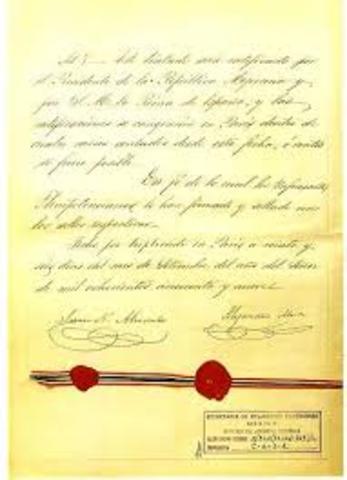 Art. 5 — Este tratado será ratificado por
el Presidente de la República Mexicana y
por S. M. la Reina de España, y las
ratificaciones se cangearán en París dentro de
cuatro meses contados desde esta fecha, ó antes
si fuere posible
En fé de lo cual los infrascritos
Plenipotenciarios lo han firmado y sellado con
los sellos respectivos.
Hecho por triplicado en París a veinte y
seis dias del mes de Setiembre del año del Señor
de mil ochocientos cincuenta y nueve.
Juan N. Almonte
Alejandro Mon
SECRETARIA DE RELACIONES EXTERIORES